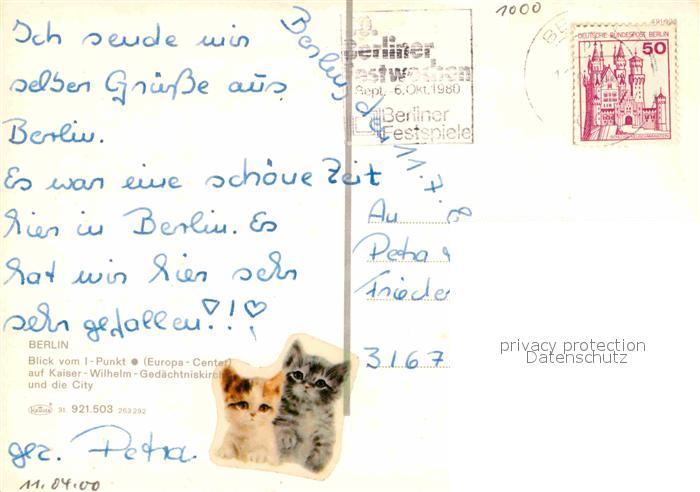 Ich sende mir
selber Grüße aus
Berlin.
Es war eine schöne Zeit
hier in Berlin. Es
hat mir hier sehr
sehr gefallen!!!
BERLIN
Blick vom I-Punkt • (Europa-Center)
auf Kaiser-Wilhelm-Gedächtniskirch
und die City
Krüger 31. 921.503 263 292
gez. Petra.
11.04.00
Berlin, den 11.7.
Berliner
Festwochen
Sept. - 6. Okt. 1980
Berliner
Festspiele
1000
DEUTSCHE BUNDESPOST BERLIN
50
An
Petra
Frieder
3167
privacy protection
Datenschutz